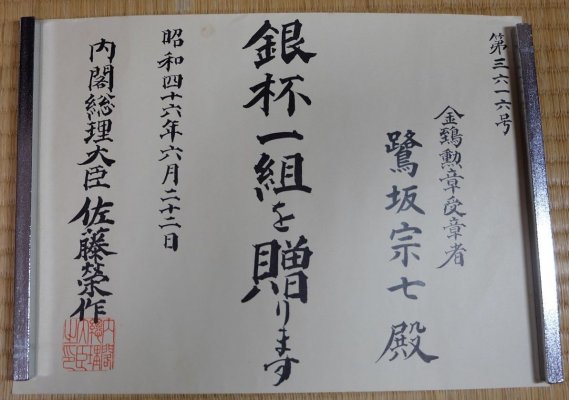 第三六一六号
金鵄勲章受章者
鷺坂宗七殿
銀杯一組を贈ります
昭和四十六年六月二十二日
内閣総理大臣 佐藤榮作
内閣總理大臣之印